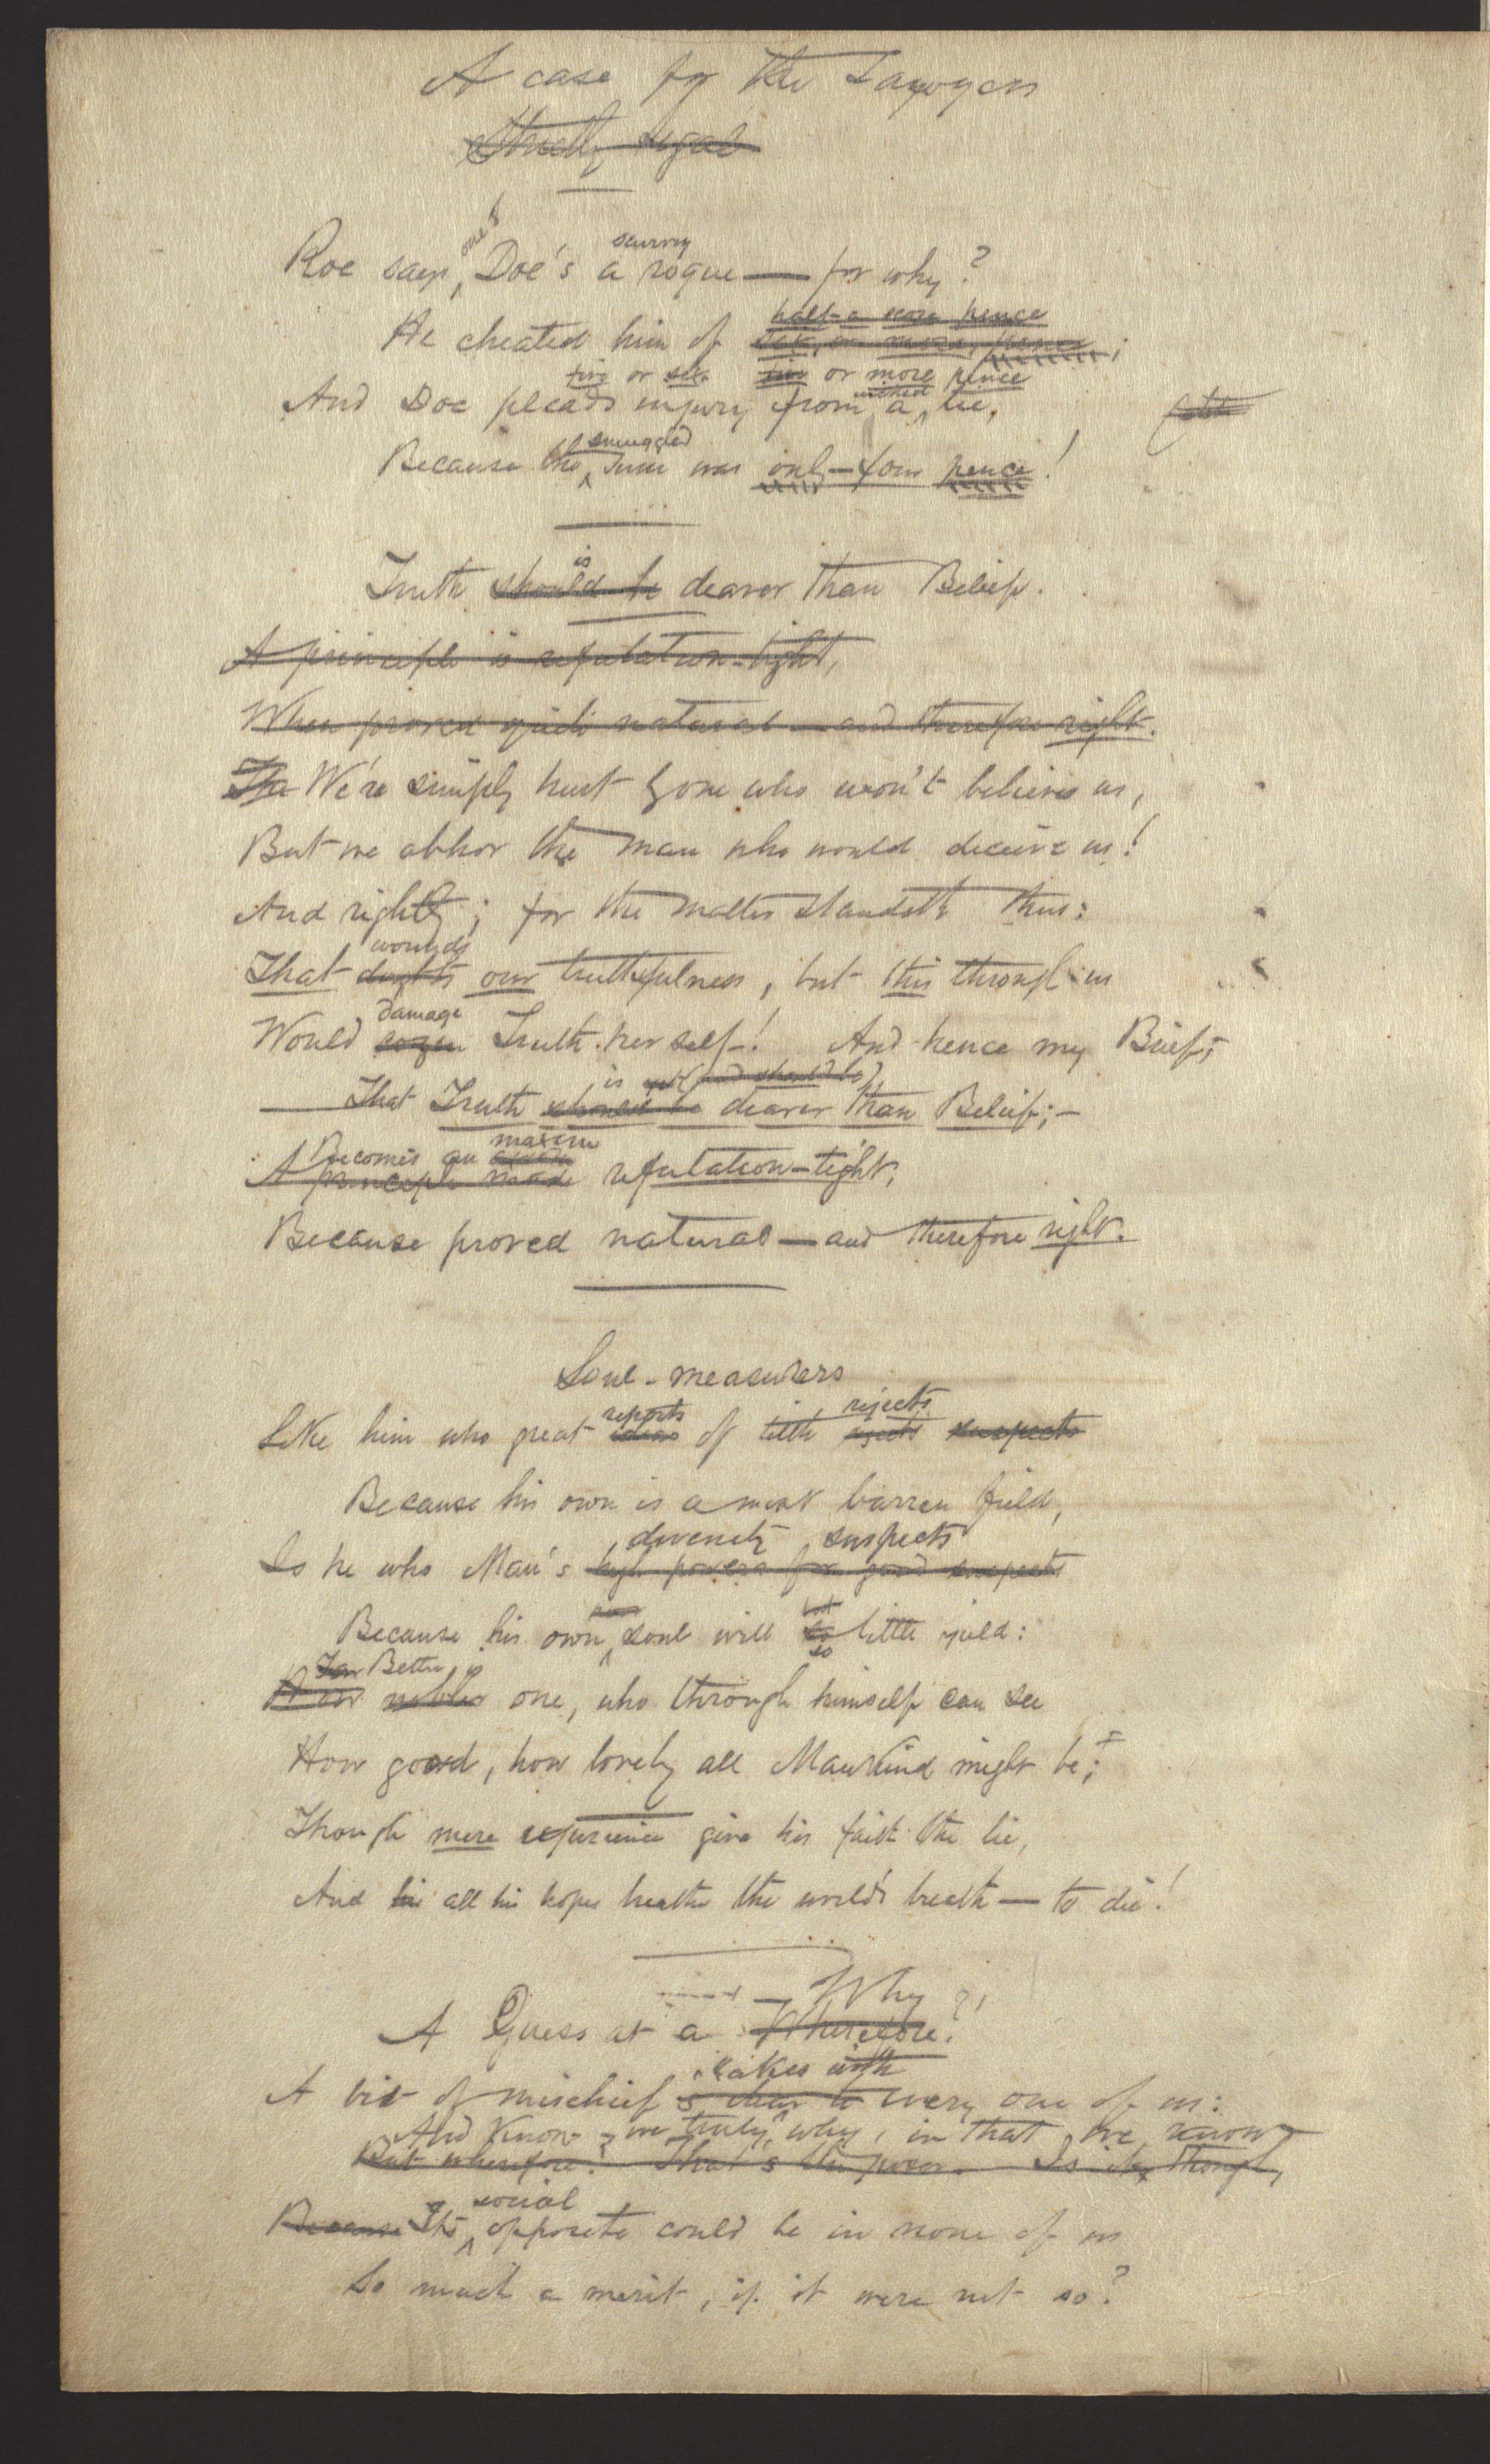 A case for the Lawyers
Strictly Legal
one
scurvy
Roe says, Doe's a rogue — for why?
half-a score pence
He cheated him of six, or more, pence;
five or six five or more pence
wicked
And Doe pleads injury from a lie,
smuggled
Because the sum was only four pence!
is
Truth should be dearer than Belief.
A principle is refutation-tight,
When proved quite natural — and therefore right.
We're simply hurt by one who won't believe us,
But we abhor the man who would deceive us!
And rightly; for the matter standeth thus:
wounds
That doubts our truthfulness, but this through us
damage
Would cozen Truth herself! And hence my Brief;
is (and should be)
— That Truth should be dearer than Belief; —
Becomes an axiom maxim
A principle made refutation-tight,
Because proved natural — and therefore right.
Soul-measurers
reports rejects
Like him who great ideas of tilth rejects suspects
Because his own is a most barren field,
divinity suspects
Is he who Man's high powers for good suspects
Because his own soul will so little yield:
so
Far Better is
nobler one, who through himself can see
How good, how lovely all Mankind might be;
Though mere experience give his faith the lie,
And his all his hopes breathe the world's breath — to die!
— Why?
A Guess at a Wherefore?
takes with
A bit of mischief 's dear to every one of us:
And know we truly why, in that we know
But wherefore? That's the poser. Is it, though,
social
Because Its opposite could be in none of us
So much a merit, if it were not so?